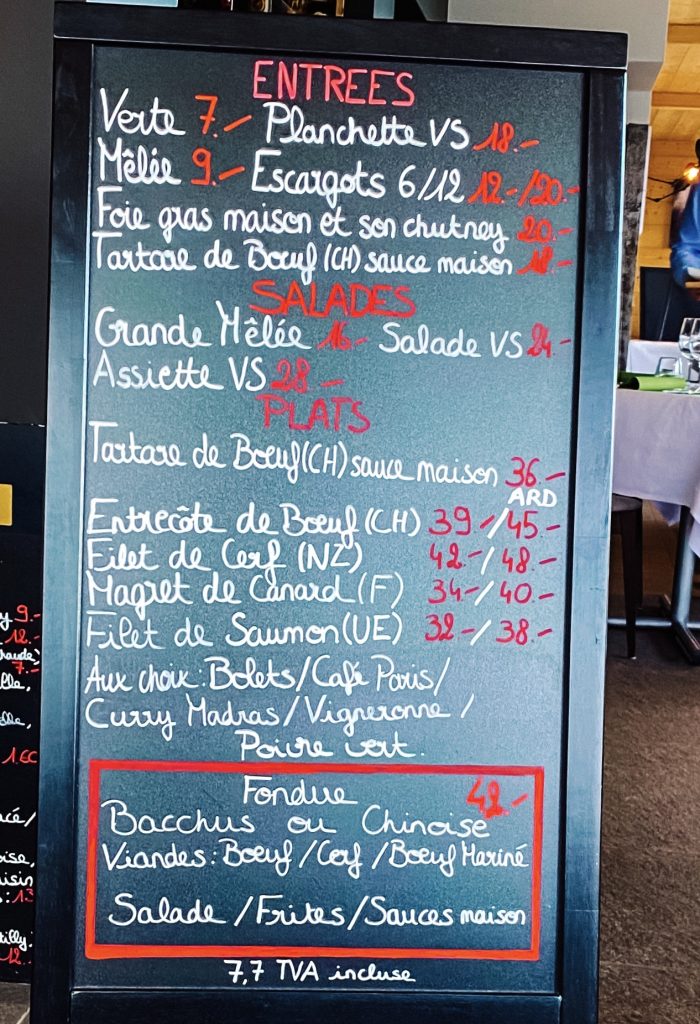 ENTREES
Verte 7.- Planchette VS 18.-
Mêlée 9.- Escargots 6/12 12.-/20.-
Foie gras maison et son chutney 20.-
Tartare de Boeuf (CH) sauce maison 18.-
SALADES
Grande Mêlée 16.- Salade VS 24.-
Assiette VS 28.-
PLATS
Tartare de Boeuf (CH) sauce maison 36.-
ARD
Entrecôte de Boeuf (CH) 39.-/45.-
Filet de Cerf (NZ) 42.-/48.-
Magret de Canard (F) 34.-/40.-
Filet de Saumon (UE) 32.-/38.-
Aux choix: Bolets/Café Paris/
Curry Madras/Vigneronne/
Poivre vert.
Fondue 42.-
Bacchus ou Chinoise
Viandes: Boeuf/Cerf/Boeuf Mariné
Salade/Frites/Sauces maison
7,7 TVA incluse
9.-
12.-
7.-
12.-